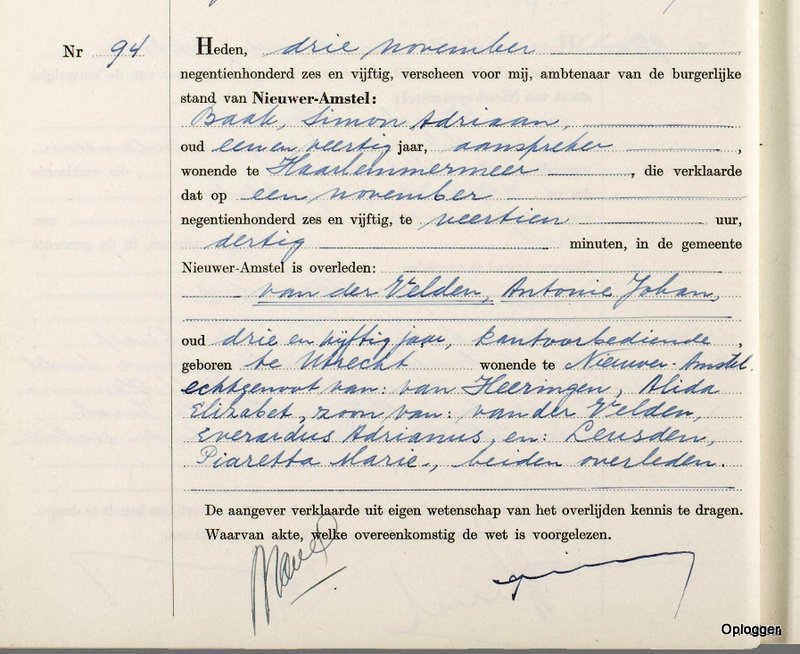 Nr 94
Heden, drie november
negentienhonderd zes en vijftig, verscheen voor mij, ambtenaar van de burgerlijke
stand van Nieuwer-Amstel:
Baak, Simon Adriaan,
oud eenen veertig jaar, aanspreker ,
wonende te Haarlemmermeer , die verklaarde
dat op een november
negentienhonderd zes en vijftig, te veertien uur,
dertig minuten, in de gemeente
Nieuwer-Amstel is overleden:
van der Velden, Antonie Johan,
oud drie en vijftig jaar, kantoorbediende ,
geboren te Utrecht wonende te Nieuwer-Amstel.
echtgenoot van: van Heeringen, Alida
Elizabet, zoon van: van der Velden,
Everardus Adrianus, en: Leusden,
Piaretta Marie., beiden overleden.
De aangever verklaarde uit eigen wetenschap van het overlijden kennis te dragen.
Waarvan akte, welke overeenkomstig de wet is voorgelezen.
Oplogger